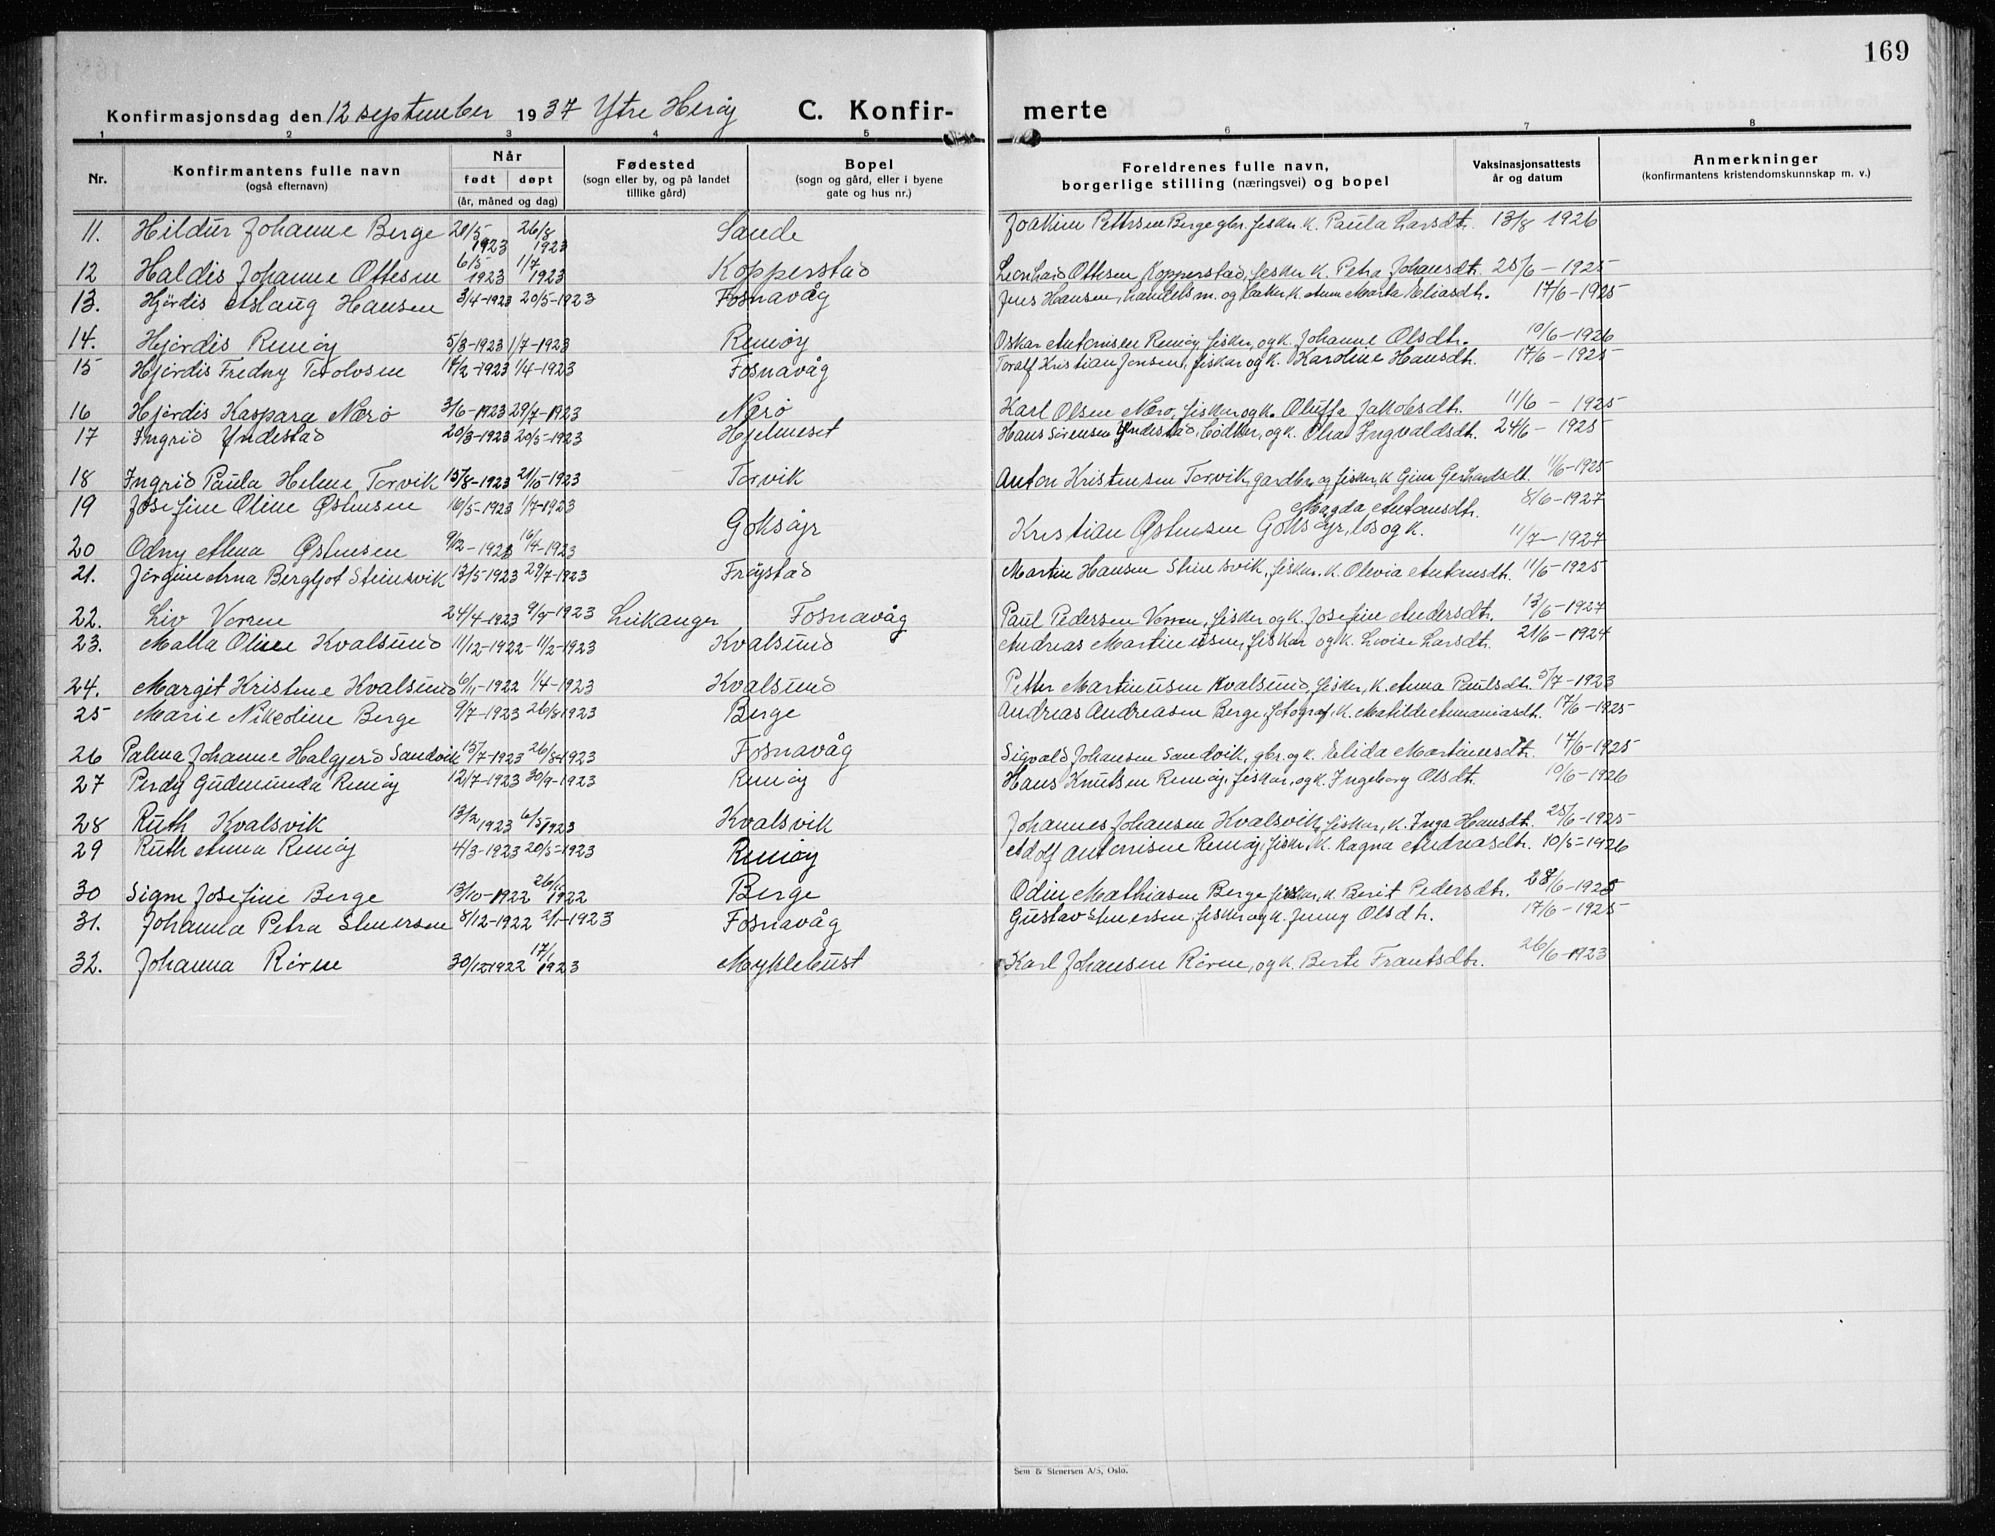 169
Konfirmasjonsdag den 12 september 1937 Ytre Herøy C. Konfirmerte
1 2 3 4 5 6 7 8
Nr. Konfirmantens fulle navn (også efternavn) Når født døpt (år, måned og dag) Fødested (sogn eller by, og på landet tillike gård) Bopel (sogn og gård, eller i byene gate og hus nr.) Foreldrenes fulle navn, borgerlige stilling (næringsvei) og bopel Vaksinasjonsattests år og datum Anmerkninger (konfirmantens kristendomskunnskap m. v.)
11. Hildur Johanne Berge 20/5 1923 26/8 1923 Sande Joakim Pettersen Berge gbr. fisker. k. Paula Larsdt. 13/8 1926
12 Haldis Johanne Ottesen 6/5 1923 1/7 1923 Kopperstad Leonhard Ottesen Kopperstad, fisker k. Petra Johansdt. 25/6 - 1925
13. Hjørdis Aslaug Hansen 3/4-1923 20/5-1923 Fosnavåg Jens Hansen, handelsm. og baker k. Anne Marta Eliasdt. 17/6-1925
14. Hjørdis Remøy 5/3-1923 1/7-1923 Remøy Oskar Antonisen Remøy, fisker, og k. Johanne Olsdt. 10/6-1926
15 Hjørdis Fredny Torolvsen 14/2-1923 1/4-1923 Fosnavåg Toralf Kristian Jensen, fisker og k. Karoline Hansdt. 17/6-1925
16 Hjørdis Kaspara Nærø 3/6-1923 29/7-1923 Nærø Karl Olsen Nærø, fisker og k. Oluffa Jakobsdt. 11/6 - 1925
17 Ingrid Yndestad 20/3-1923 20/5-1923 Hjelmeset Hans Sørensen Yndestad, bødker, og k. Olea Ingvaldsdt. 24/6 - 1925
18 Ingrid Paula Helene Torvik 15/8-1923 21/10-1923 Torvik Anton Kristensen Torvik, gardbr. og fisker, k Gina Gerhardsdt. 11/6-1925
19 Josefine Oline Østensen 16/5-1923 1/7-1923 Magda Antonsdt. 8/6-1927
Goksøyr Kristian Østensen Goksøyr, los og k.
20 Odny Anna Østensen 9/2-1923 16/4-1923 11/7-1927
21. Jørgine Arna Bergljot Steinsvik 13/5-1923 29/7-1923 Frøystad Martin Hansen Steinsvik, fisker, k. Olevia Antonsdt. 11/6-1925
22. Liv Vorren 24/4-1923 9/9-1923 Leikanger Fosnavåg Paul Pedersen Vorren, fisker og k. Josefine Andersdt. 13/6-1927
23. Malla Oline Kvalsund 11/12-1922 - 11/2-1923 Kvalsund Andreas Martinussen, fisker og k. Lovise Larsdt. 21/6-1924
24. Margit Kristine Kvalsund 6/11-1922 1/4-1923 Kvalsund Petter Martinusen Kvalsund, fisker, k. Anna Paulsdt. 5/7-1923
25 Marie Nikoline Berge 9/7-1923 26/8 1923 Berge Andreas Andreasen Berge, fotograf, k. Matilde Ananiasdt. 17/6-1925
26 Palma Johanne Halgjerd Sandvik 15/7-1923 26/8-1923 Fosnavåg Sigvald Johansen Sandvik, gbr. og k. Elida Martinusdt. 17/6-1925
27 Perdy Gudmunda Remøy 12/7-1923 30/9-1923 Remøy Hans Knutsen Remøy, fisker, og k. Ingeborg Olsdt. 10/6-1926
28 Ruth Kvalsvik 13/2 1923 6/5 1923 Kvalsvik Johannes Johansen Kvalsvik, fisker, k. Inga Hansdt. 25/6-1925
29 Ruth Anna Remøy 4/3-1923 20/5-1923 Remøy Adolf Antonisen Remøy, fisker, k. Ragna Andreasdt. 10/5-1926
30 Signe Josefine Berge 13/10-1922 26/11 1922 Berge Odin Mathiasen Berge fisker, k. Berit Pedersdt. 28/6-1925
31. Johanna Petra Stenersen 8/12-1922 2/1-1923 Fosnavåg Gustav Stenersen, fisker og k. Jenny Olsdt. 17/6-1925
32. Johanna Røren 30/12 1922 17/1 1923 Myklebust Karl Johansen Røren, og k. Berte Frantsdt. 26/6-1923
Sem & Stenersen A/S, Oslo.